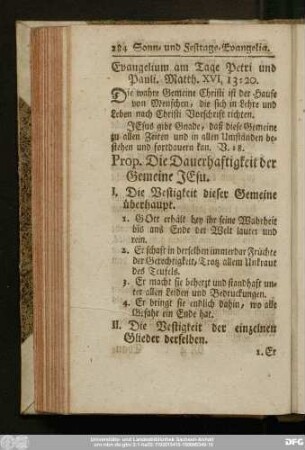 284 Sonn- und Festtags-Evangelia.
Evangelium am Tage Petri und
Pauli. Matth. XVI, 13-20.
Die wahre Gemeine Christi ist der Haufe
von Menschen, die sich in Lehre und
Leben nach Christi Vorschrift richten.
JEsus gibt Gnade, daß diese Gemeine
zu allen Zeiten und in allen Umständen be-
stehen und fortdauern kan. V. 18.
Prop. Die Dauerhaftigkeit der
Gemeine JEsu.
I. Die Vestigkeit dieser Gemeine
überhaupt.
1. GOtt erhält bey ihr seine Wahrheit
bis ans Ende der Welt lauter und
rein.
2. Er schaft in derselben immerdar Früchte
der Gerechtigkeit, Trotz allem Unkraut
des Teufels.
3. Er macht sie beherzt und standhaft un-
ter allen Leiden und Bedruckungen.
4. Er bringt sie endlich dahin, wo alle
Gefahr ein Ende hat.
II. Die Vestigkeit der einzelnen
Glieder derselben.
1. Er
Universitäts- und Landesbibliothek Sachsen-Anhalt
DFG